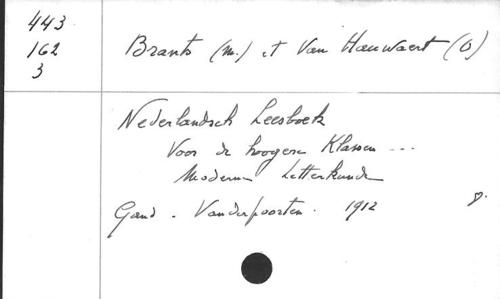 443
162
3
Brants (M.) et Van Hauwaert (O)
Nederlandsch Leesboek
Voor de hoogere Klassen ...
Moderne Letterkunde
Gand. Vanderpoorten. 1912
8.